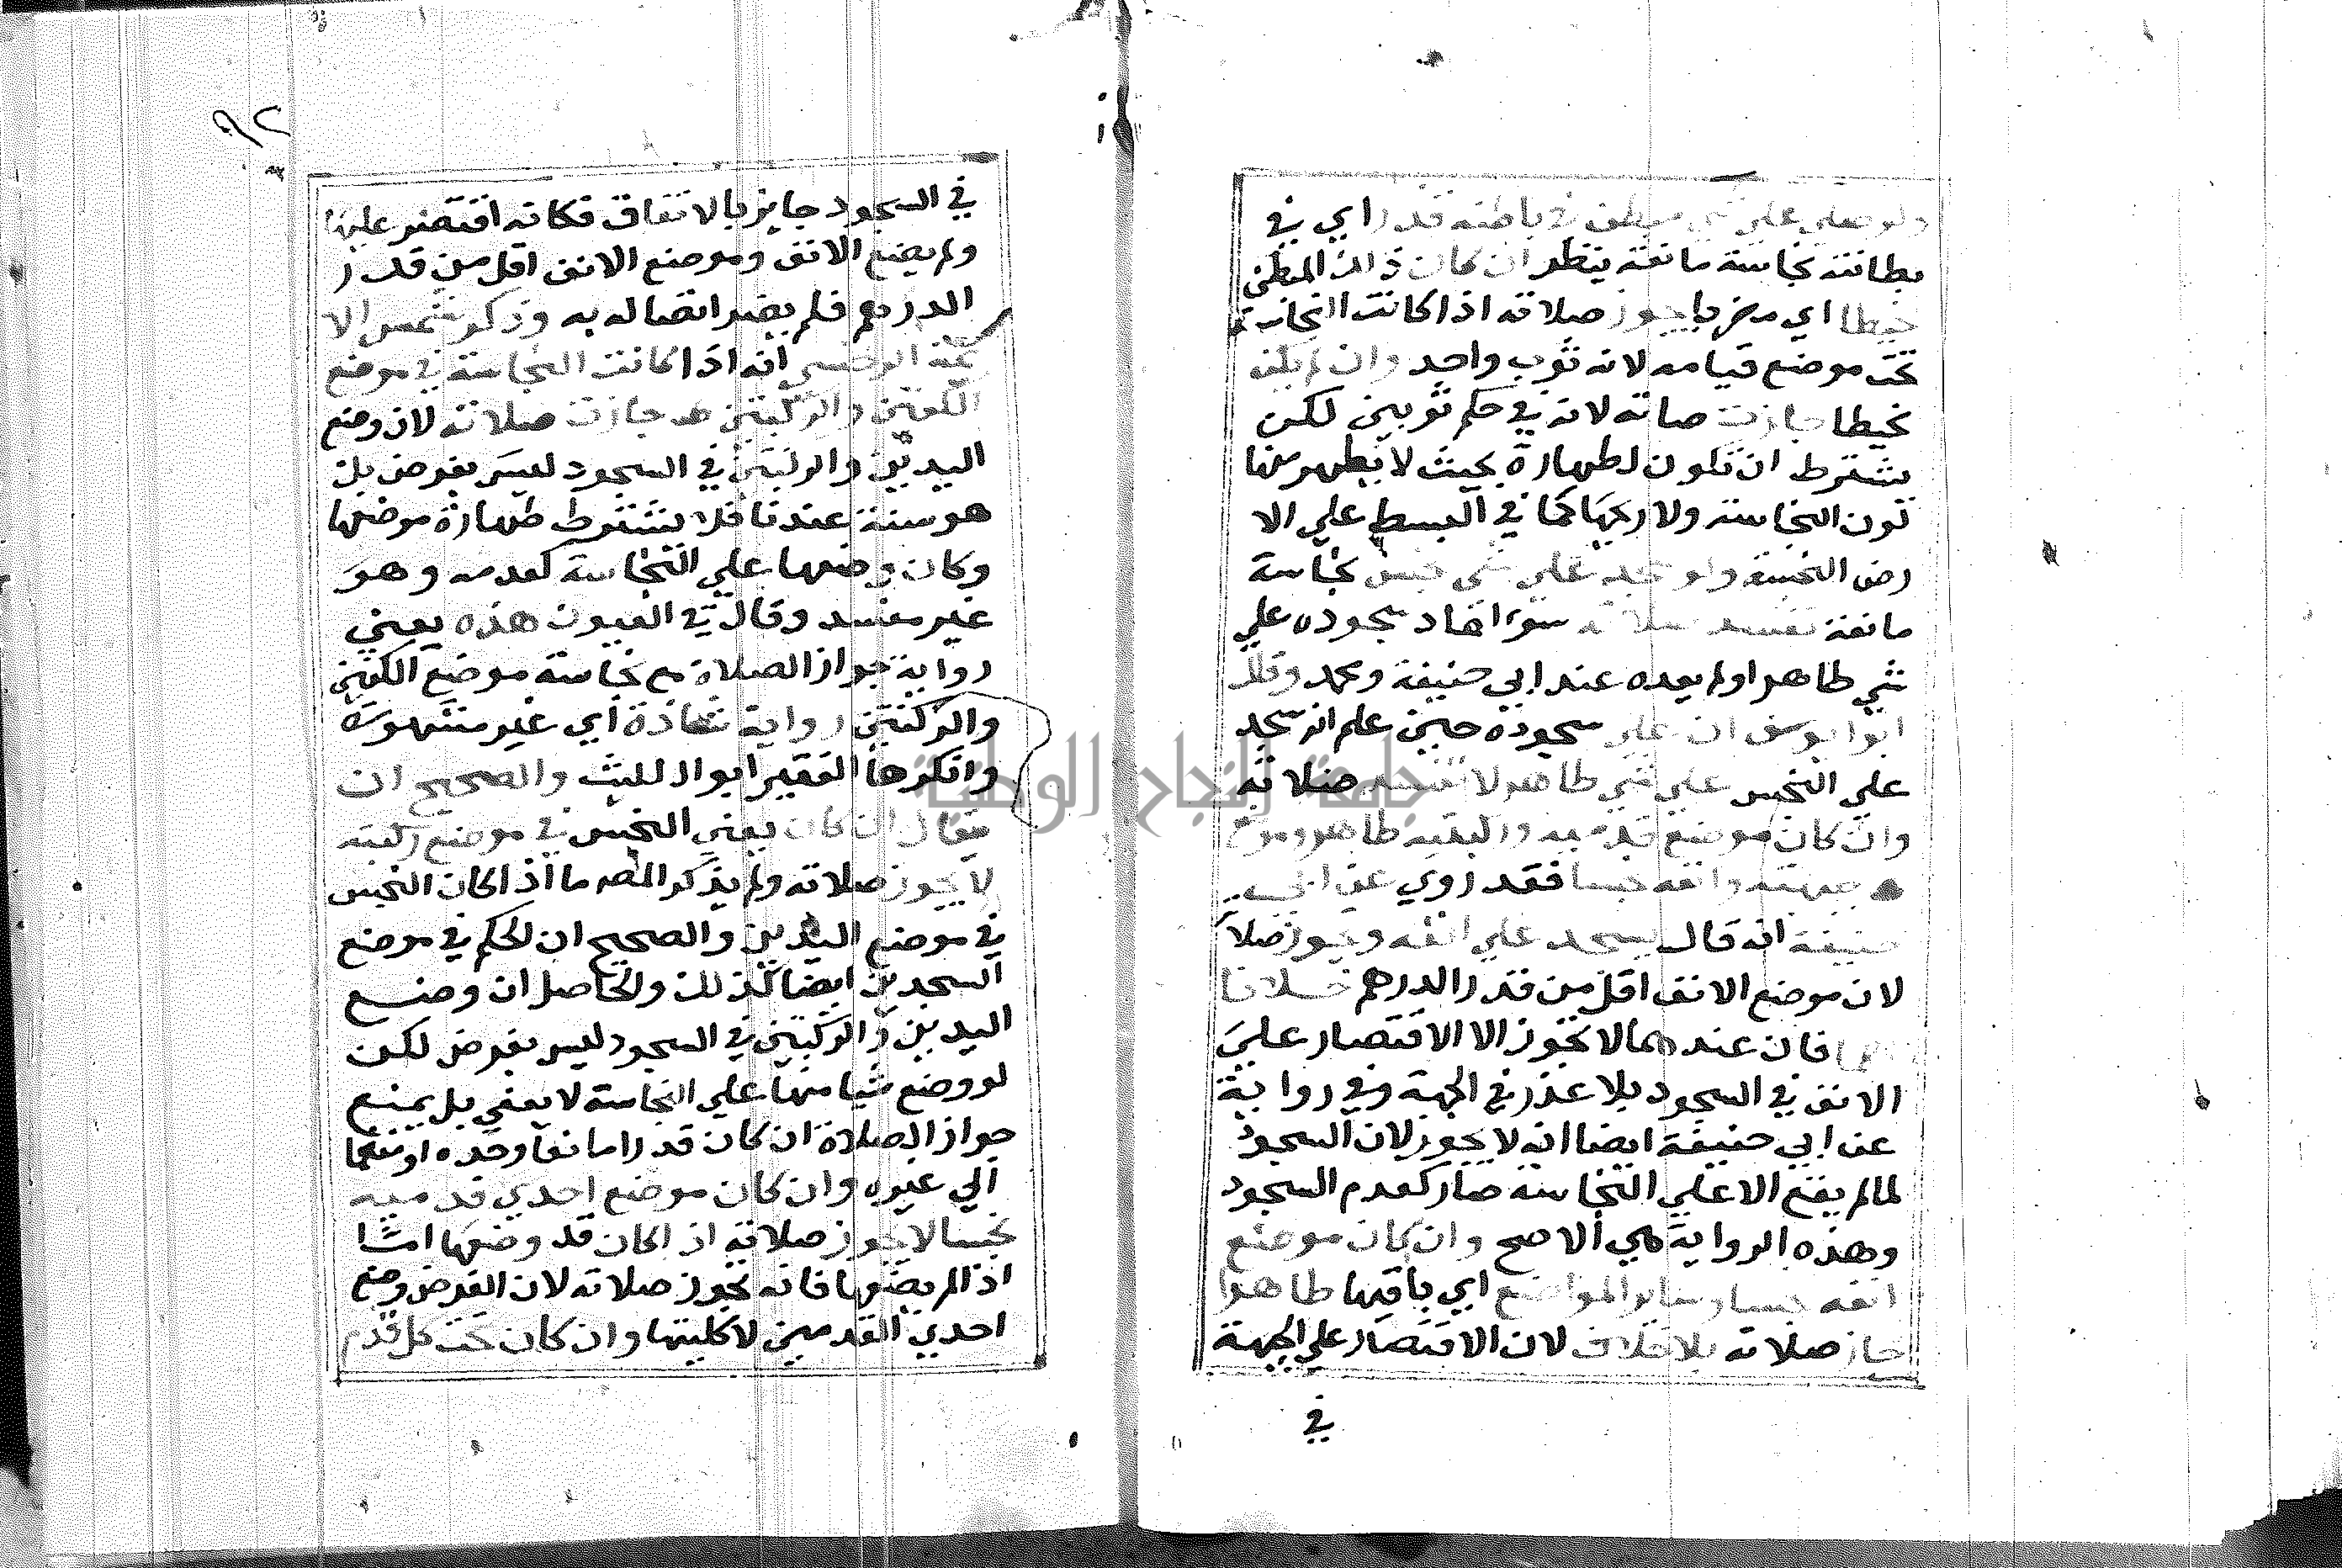 ولو صلي علي شي مبطن في باطنه قدرا اي في
بطانته نجاسة مانعة ينظر ان كان ذالك المبطن
خيطا اي مضربا يجوز صلاته اذا كانت النجاسة
تحت موضع قيامه لانه ثوب واحد وان لم يكن
نخيطا جازت صاته لانه في حكم ثوبين لكن
يشترط ان تكون لطهارة بحيث لا يظهر منها
لون النجاسة ولا ريحها كما في البسط علي الا
رض النجسة ولو سجد علي شي نجس نجاسة
مانعة تفسد صلاته سوا اعاد سجوده علي
شي طاهر او لم يعده عند ابي حنيفة ومحمد وقال
ابوا يوسف ان علي سجوده حين علم انه سجد
علي النجس علي شي طاهر لا تفسد صلاته
وان كان موضع قدميه وركبتيه طاهر وموضع
جبهته وانفه نجسا فقد روي عن ابي
حنيفة انه قال يسجد علي انفه ويجوز صلا
لان موضع الانف اقل من قدر الدرهم خلافا
لهما فان عندهما لا يجوز الا الاقتصار علي
الانف في السجود بلا عذر في الجبهة وفي رواية
عن ابي حنيفة ايضا انه لا يجوز لان السجود
لما لم يقع الا علي النجاسة صار كعدم السجود
وهذه الرواية هي الاصح وان كان موضع
انفه نجسا وساير المواضع اي باقيها طاهرا
جاز صلاته بلا خلاف لان الاقتصار علي الجبهة
في
٩٢
في السجود جايز بالاتفاق فكانه اقتصر عليها
ولم يضع الانف وموضع الانف اقل من قدر
الدرهم فلم يضر اتصاله به وذكر شمس الا
ئمة السرخسي انه اذا كانت النجاسة في موضع
الكفين والركبتين جازت صلاته لان وضع
اليدين والركبتين في السجود ليس بفرض بل
هو سنة عندنا فلا يشترط طهارة موضعها
وكان وضعها علي النجاسة كعدمه وهو
غير مفسد وقال في العيون هذه يعني
رواية جواز الصلاة مع نجاسة موضع الكفين
والركبتين رواية شاذة اي غير مشهورة
وانكرها الفقير ابوا لليث والصحيح ان
يقال ان كان يعني النجس في موضع ركبته
لا يجوز صلاته ولم يذكر المص ما اذا كان النجس
في موضع اليدين والصحيح ان الحكم في موضع
السجدتين ايضا كذلك والحاصل ان وضع
اليدين والركبتين في السجود ليس بفرض لكن
لو وضع شيا منها علي النجاسة لا يعفي بل يمنع
جواز الصلاة ان كان قدرا مانعا وحده او منضما
الي غيره وان كان موضع احدي قدميه
نجسا لا يجوز صلاته اذا كان قد وضعها اما
اذا لم يضعها فانه يجوز صلاته لان الفرض وضع
احدي القدمين لا كليتها وان كان تحت كل قدم
جامعة النجاح الوطنية